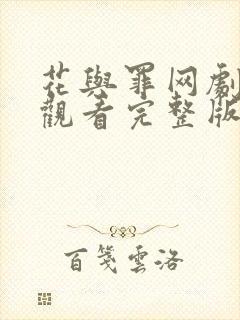 花與罪网劇
觀看完整版
百箋雲洛